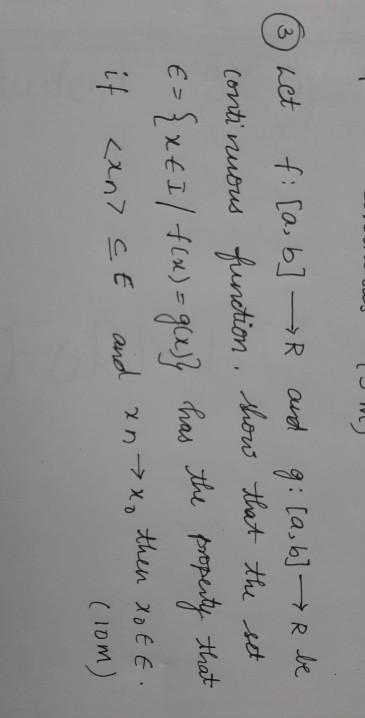 ③ Let f: [a, b] → R and g: [a, b] → R be
continuous function. show that the set
E = {x ∈ I / f(x) = g(x)} has the property that
if <xn> ⊆ E and xn → x₀ then x₀ ∈ E.
(10M)